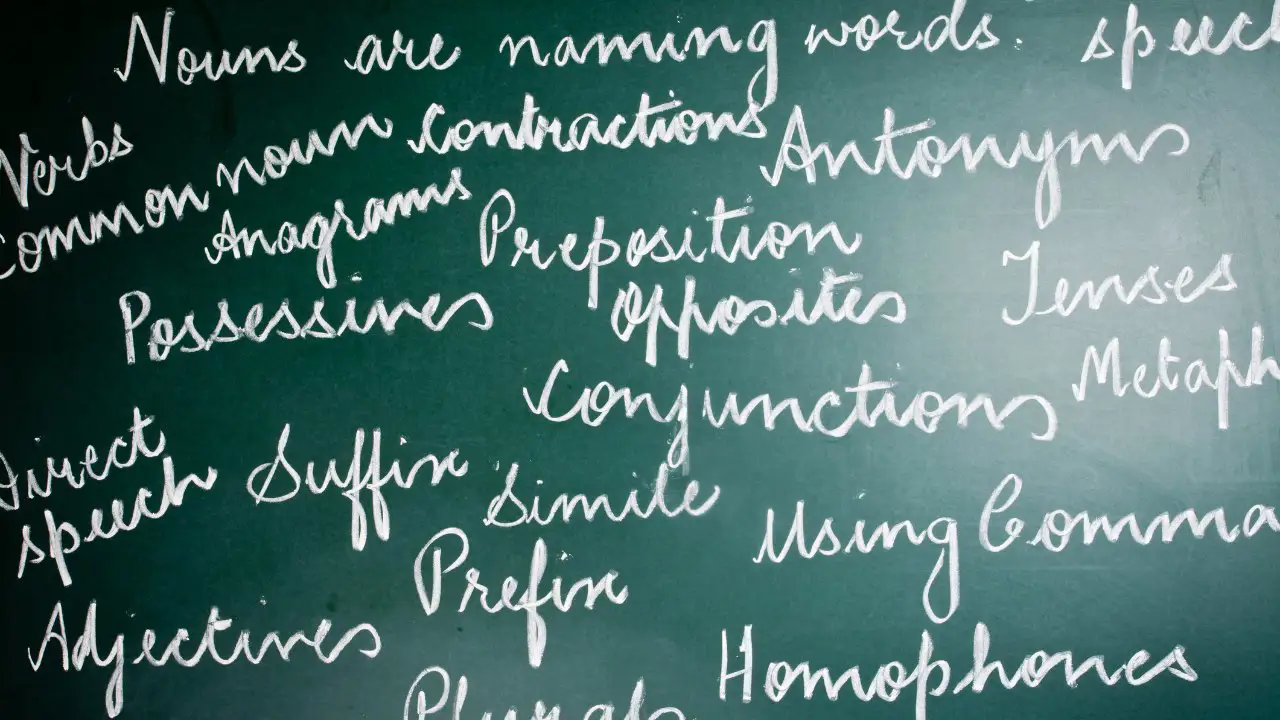 Nouns are naming words. speech
Verbs
Common noun contractions Antonyms
Anagrams Preposition
Possessives opposites Tenses
Conjunctions Metaph
Direct
speech Suffix Simile
Using Comma
Prefix
Adjectives
Homophones
Plurals